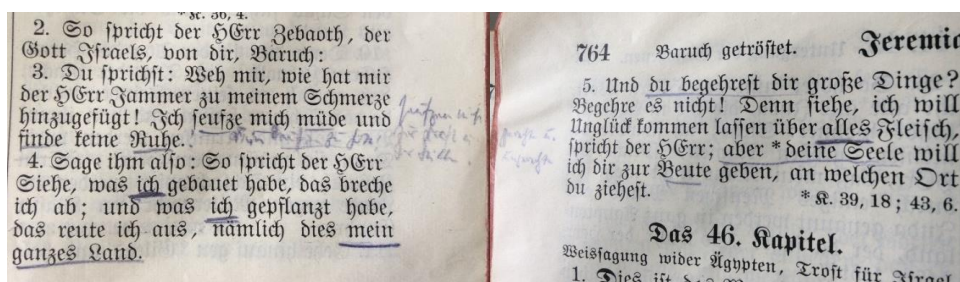 * K. 36, 4.
2. So spricht der HErr Zebaoth, der
Gott Israels, von dir, Baruch:
3. Du sprichst: Weh mir, wie hat mir
der HErr Jammer zu meinem Schmerze
hinzugefügt! Ich seufze mich müde und
finde keine Ruhe.
4. Sage ihm also: So spricht der HErr
Siehe, was ich gebauet habe, das breche
ich ab; und was ich gepflanzt habe,
das reute ich aus, nämlich dies mein
ganzes Land.
764 Baruch getröstet. Jeremia
5. Und du begehrest dir große Dinge?
Begehre es nicht! Denn siehe, ich will
Unglück kommen lassen über alles Fleisch,
spricht der HErr; aber * deine Seele will
ich dir zur Beute geben, an welchen Ort
du ziehest. * K. 39, 18; 43, 6.
Das 46. Kapitel.
Weissagung wider Ägypten, Trost für Israel
1. Dies ist